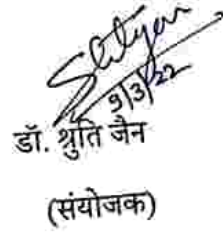 9/3/22
डॉ. श्रुति जैन
(संयोजक)